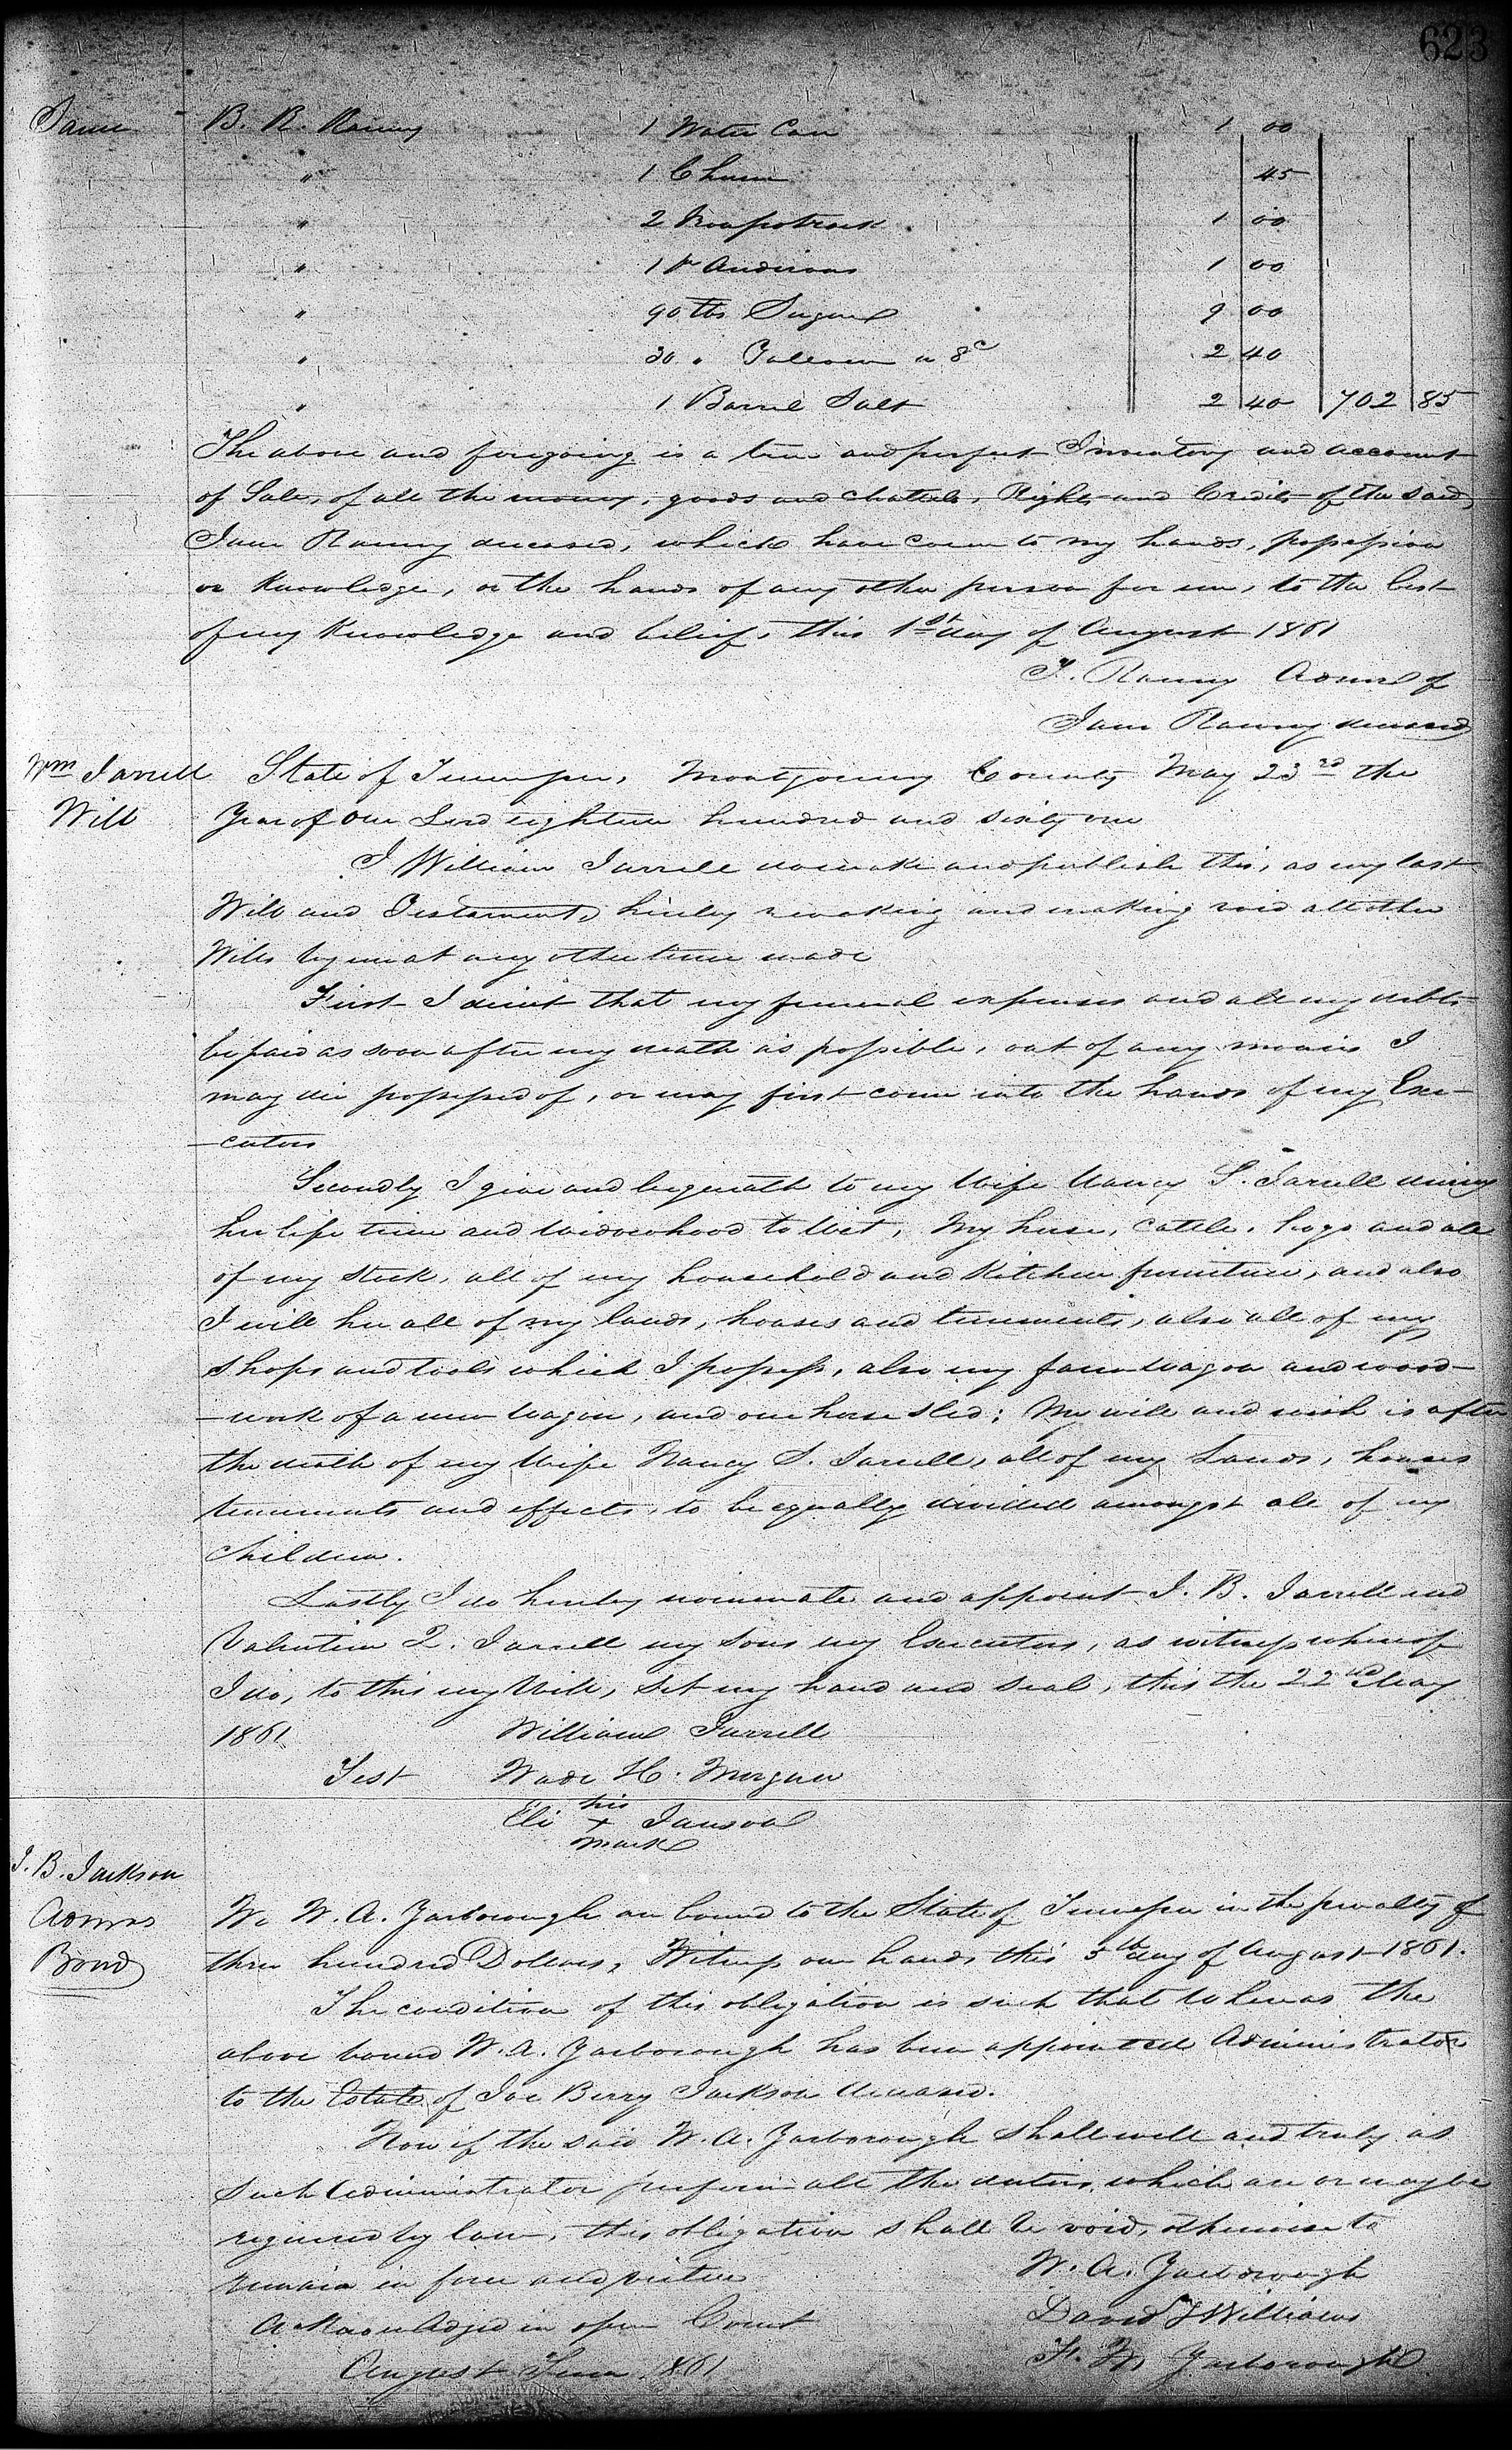 623
Same B. R. Raimy 1 Water Can 1 00
" 1 Churn 45
" 2 1 00
" 1 pr Andirons 1 00
" 90 lbs Sugar 9 00
" 30 " Tallow a 8c 2 40
" 1 Barrel Salt 2 40 702 85
The above and foregoing is a true and perfect Inventory and account
of Sale, of all the money, goods and chattels, Rights and Credits of the said
deceased, which have come to my hands, possession
or Knowledge, or the hands of any other person for me, to the best
of my Knowledge and belief, this 1st day of August 1861
Admr of
deceased
Wm Jarrell State of Tennessee, Montgomery County May 23rd the
Will Year of Our Lord eighteen hundred and sixty one
I William Jarrell do make and publish this, as my last
Will and Testament, hereby revoking and making void all other
Wills by me at any other time made
First I direct that my funeral expenses and all my debts
be paid as soon after my death as possible, out of any monies I
may die possessed of, or may first come into the hands of my Exe-
-cutors
Secondly I give and bequeath to my Wife Nancy S. Jarrell during
her life time and widowhood to Wit, My horse, cattle, hogs and all
of my stock, all of my household and Kitchen furniture, and also
I will her all of my lands, houses and tenements, also all of my
shops and tools which I possess, also my farm wagon and wood-
-work of a new wagon, and one horse sled; My will and wish is after
the death of my Wife Nancy S. Jarrell, all of my Lands, houses
tenements and effects, to be equally divided amongst all of my
children.
Lastly I do hereby nominate and appoint J. B. Jarrell and
Valentine Q. Jarrell my Sons my Executors, as witness whereof
I do, to this my Will, set my hand and seal, this the 22nd May
1861 William Jarrell
Test Wade H. Morgan
Eli his x mark
J. B. Jackson
Admrs
Bond
We W. A. Yarborough are bound to the State of Tennessee in the penalty of
three hundred Dollars, Witness our hands this 5th day of August 1861.
The condition of this obligation is such that whereas the
above bound W. A. Yarborough has been appointed Administrator
to the Estate of Joe Berry Jackson deceased.
Now if the said W. A. Yarborough shall well and truly as
such Administrator perform all the duties, which are or may be
required by law, this obligation shall be void, otherwise to
remain in force and virtue
W. A. Yarborough
Acknowledged in open Court David Williams
August Term 1861 Yarborough